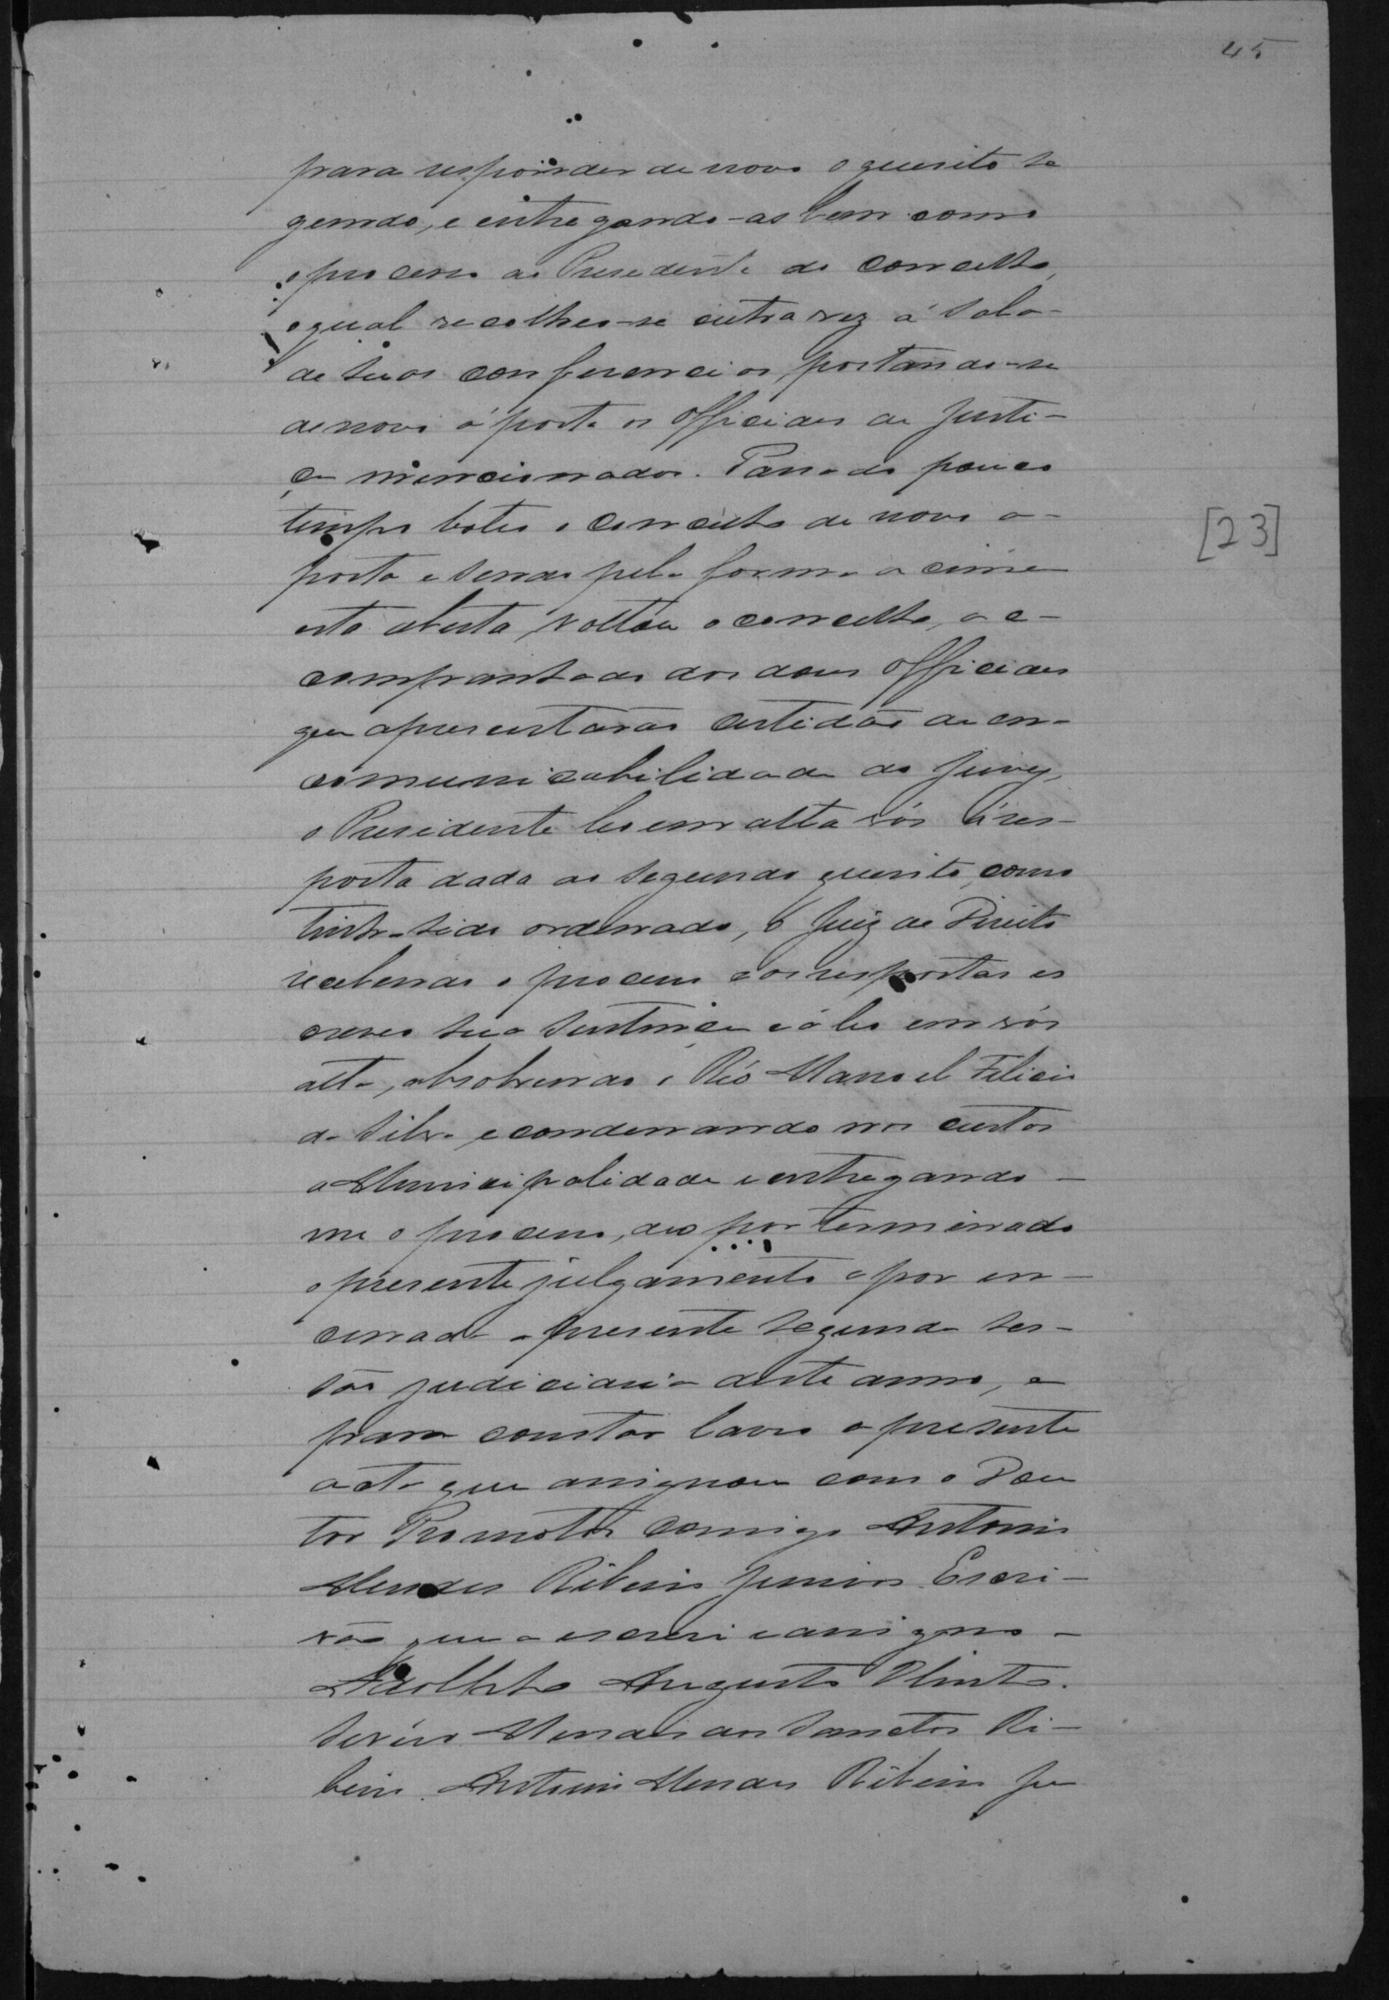 45
para responder de novo o quesito se
gundo, e entregando-as bem como
o processo ao Presidente do concelho,
o qual recolheo-se outra vez á sala
de suas conferencias, postando-se
de novo á porta os officiaes de Justi-
ça mencionados. Passado pouco
tempo bateo o concelho de novo a
porta e sendo pela forma acima
[23]
esta aberta, voltou o concelho, a c-
companhado dos dous officiaes
que apresentarão certidão de en-
comunicabilidade do Jury,
o Presidente leo em alta vós á res-
posta dada ao segundo quesito, como
tinha sido ordenado, o Juiz de Direito
recebendo o processo e as respostas es
creveo sua sentença e á leo em vós
alta, absolvendo o Réo Manoel Felicio
da Silva e condemnando nas custas
a Municipalidade e entregando-
me o processo, deo por terminado
o presente julgamento e por en-
cerrada a presente segunda ses-
são judiciaria deste anno, e
para constar lavro a presente
acta que assignou com o Dou
tor Promotor comigo Antonio
Mendes Ribeiro Junior Escri-
vão que a escrevi e assigno -
Adolpho Augusto Olinto.
Mendes dos Sanctos Ri-
beiro. Antonio Mendes Ribeiro Ju